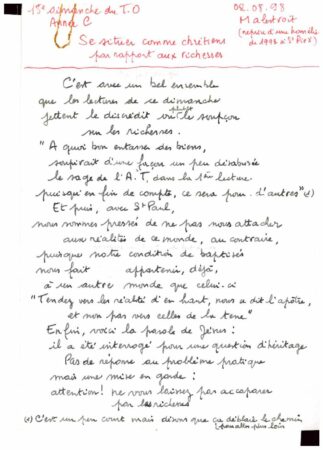 18è dimanche du T.O
Année C
02.08.98
Malestroit
(reprise d'une homélie
de 1992 à St Pie X)
Se situer comme chrétiens
par rapport aux richesses
C'est avec un bel ensemble
que les lectures de ce dimanche
jettent le discrédit ou plutôt le soupçon
sur les richesses.
"A quoi bon entasser des biens,
soupirait d'une façon un peu désabusée
le sage de l'A.T. dans la 1ère lecture
puisqu'en fin de compte, ce sera pour d'autres" (1)
Et puis, avec St Paul,
nous sommes pressés de ne pas nous attacher
aux réalités de ce monde, au contraire,
puisque notre condition de baptisés
nous fait appartenir, déjà,
à un autre monde que celui-ci
"Tendez vers les réalités d'en haut, nous a dit l'apôtre,
et non pas vers celles de la terre"
Enfin, voici la parole de Jésus :
il a été interrogé pour une question d'héritage
Pas de réponse au problème pratique
mais une mise en garde :
attention! ne vous laissez pas accaparer
par les richesses
(1) C'est un peu court mais disons que ça déblaie le chemin
pour aller plus loin